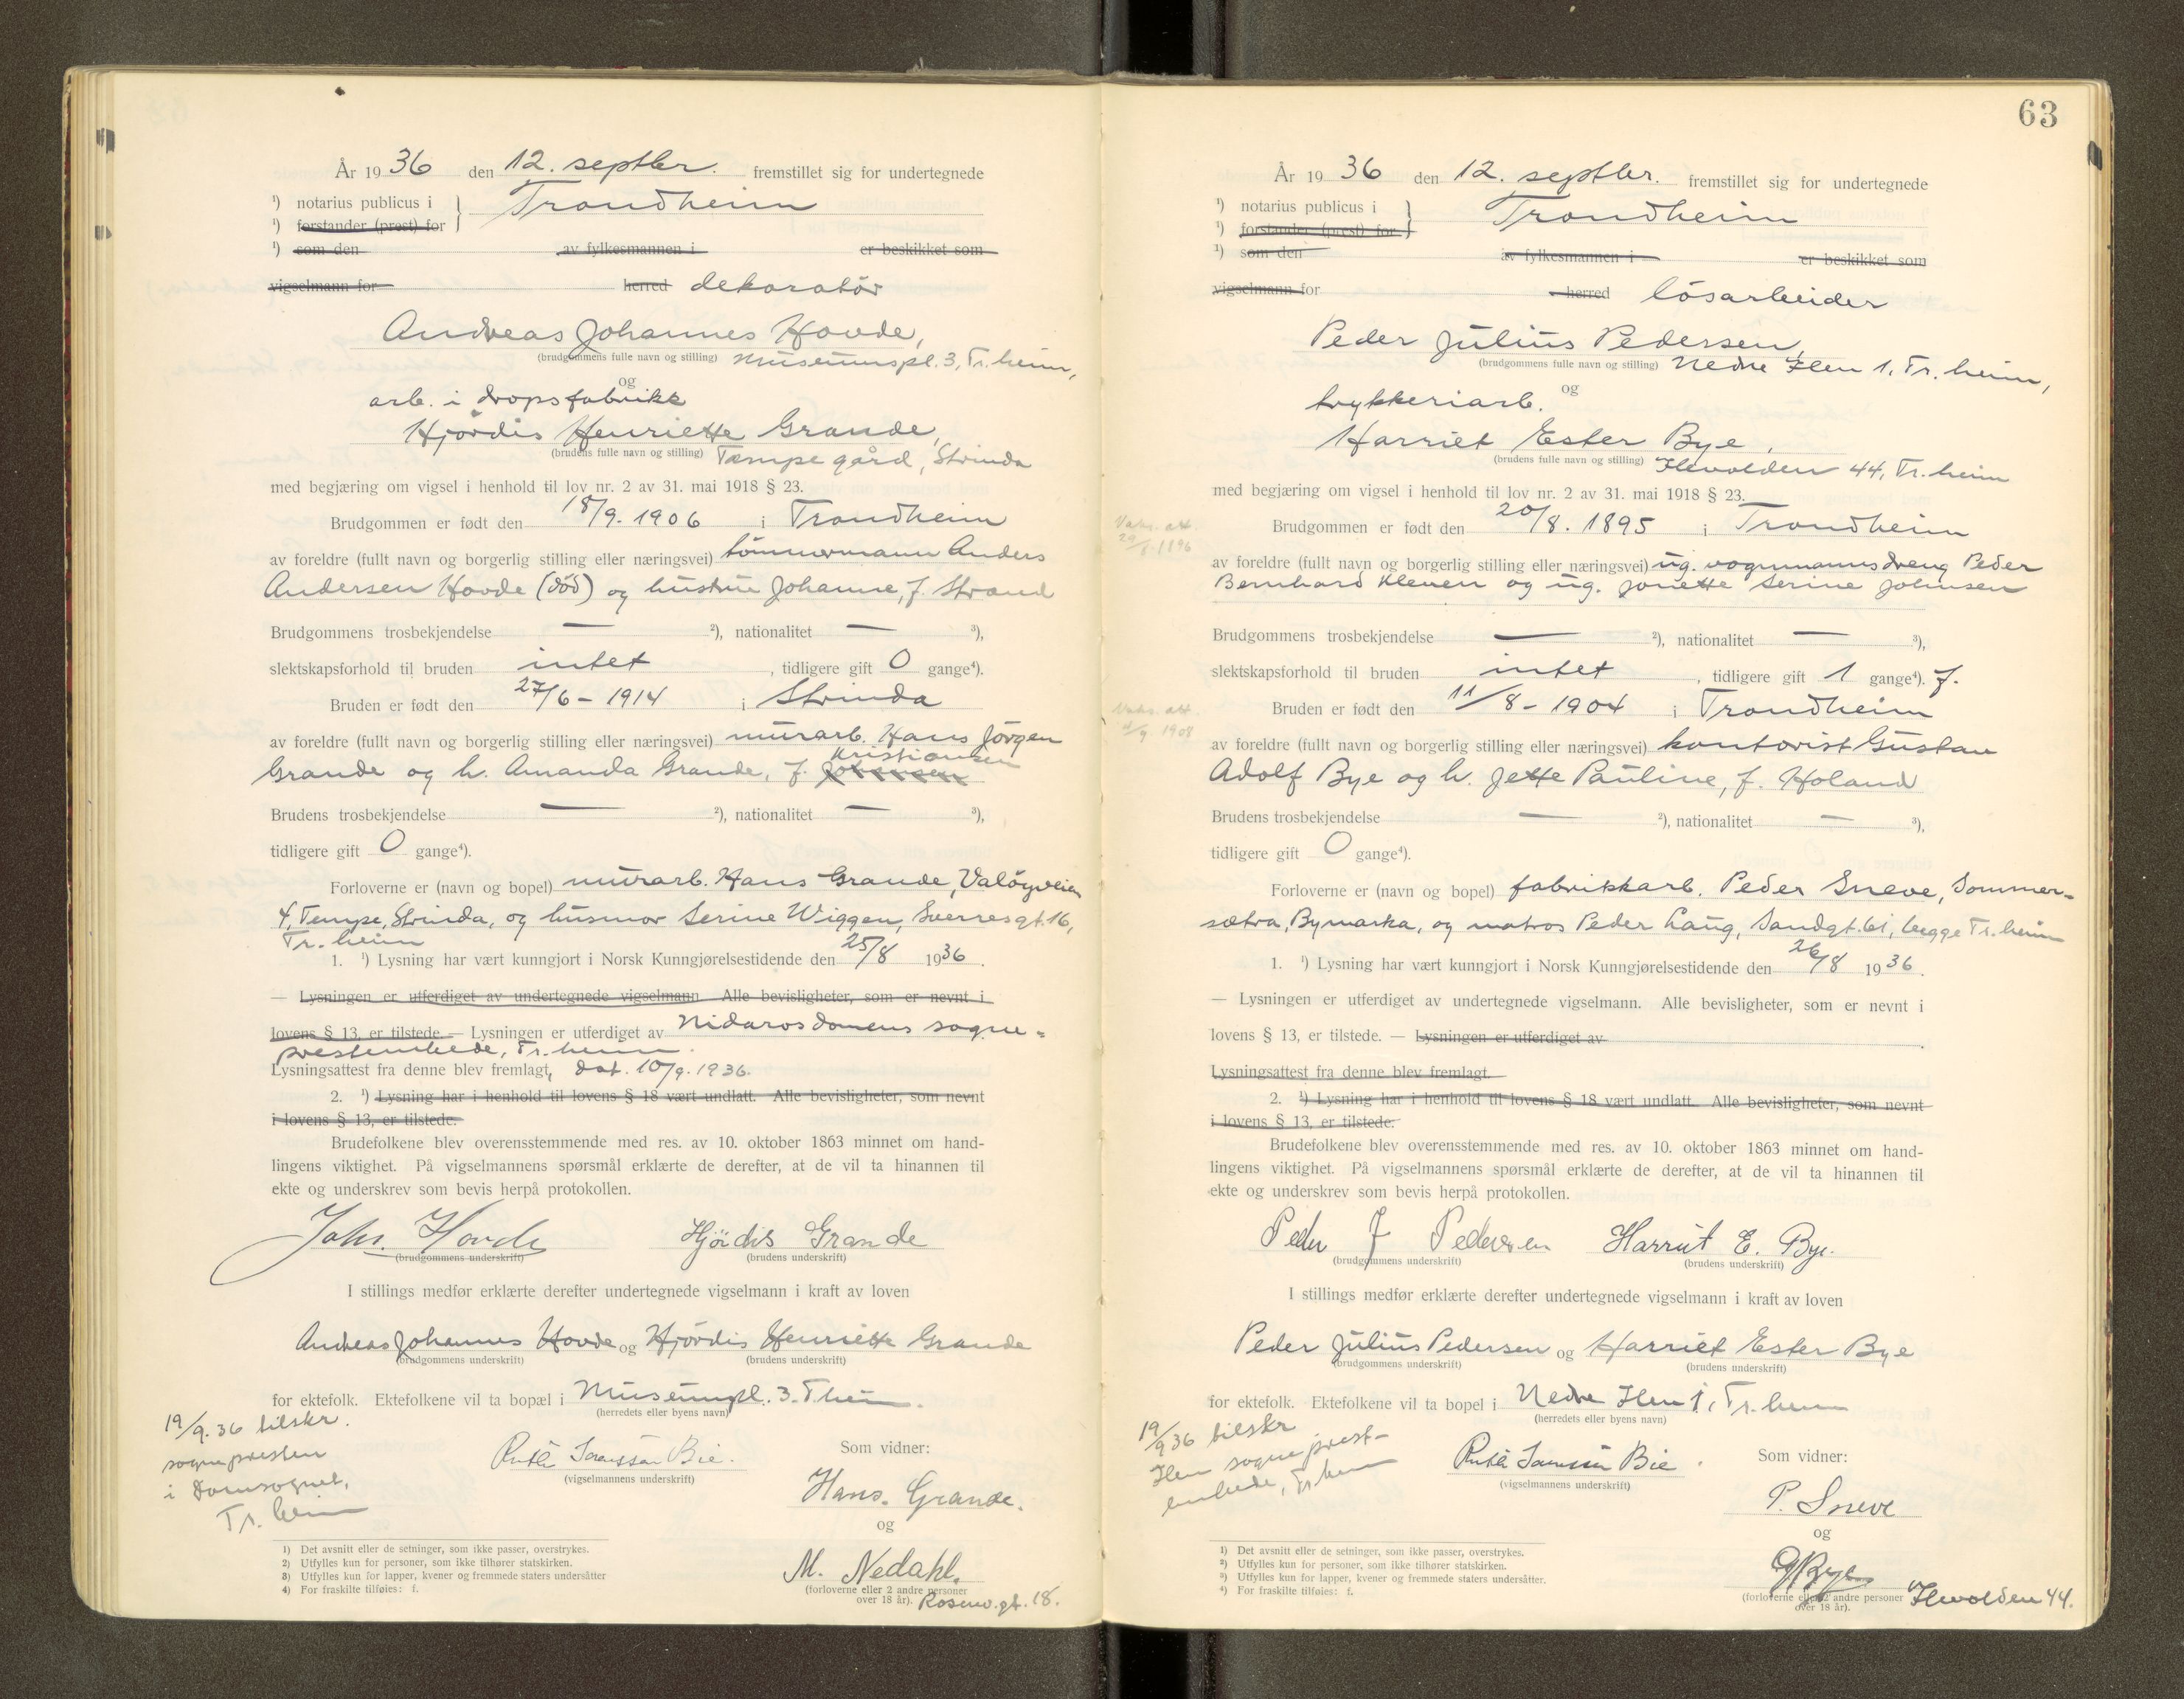 År 1936 den 12. septbr. fremstillet sig for undertegnede
¹) notarius publicus i } Trondheim
¹) forstander (prest) for
¹) som den av fylkesmannen i er beskikket som
vigselmann for herred dekoratör
Andreas Johannes Hovde,
(brudgommens fulle navn og stilling) Museumspl. 3, Tr.heim,
og
arb. i dropsfabrikk
Hjördis Henriette Grande,
(brudens fulle navn og stilling) Tempe gård, Strinda
med begjæring om vigsel i henhold til lov nr. 2 av 31. mai 1918 § 23.
Brudgommen er født den 18/9. 1906 i Trondheim
av foreldre (fullt navn og borgerlig stilling eller næringsvei) tömmermann Anders
Andersen Hovde (död) og hustru Johanne, f. Strand
Brudgommens trosbekjendelse — ²), nationalitet — ³),
slektskapsforhold til bruden intet, tidligere gift 0 gange⁴).
Bruden er født den 27/6 - 1914 i Strinda
av foreldre (fullt navn og borgerlig stilling eller næringsvei) murarb. Hans Jörgen
Kristiansen
Grande og h. Amanda Grande, f.
Brudens trosbekjendelse — ²), nationalitet — ³),
tidligere gift 0 gange⁴).
Forloverne er (navn og bopel) murarb. Hans Grande, Valöyveien
4, Tempe, Strinda, og husmor Serine Wiggen, Sverresgt. 16,
Tr.heim
1. ¹) Lysning har vært kunngjort i Norsk Kunngjørelsestidende den 25/8 1936.
— Lysningen er utferdiget av undertegnede vigselmann Alle bevisligheter, som er nevnt i
lovens § 13, er tilstede. — Lysningen er utferdiget av Nidarosdomens sogne-
prestembede, Tr.heim.
Lysningsattest fra denne blev fremlagt, dat. 10/9. 1936.
2. ¹) Lysning har i henhold til lovens § 18 vært undlatt. Alle bevisligheter, som nevnt
i lovens § 13, er tilstede.
Brudefolkene blev overensstemmende med res. av 10. oktober 1863 minnet om hand-
lingens viktighet. På vigselmannens spørsmål erklærte de derefter, at de vil ta hinannen til
ekte og underskrev som bevis herpå protokollen.
Johs. Hovde Hjördis Grande
(brudgommens underskrift) (brudens underskrift)
I stillings medfør erklærte derefter undertegnede vigselmann i kraft av loven
Andreas Johannes Hovde og Hjördis Henriette Grande
(brudgommens underskrift) (brudens underskrift)
for ektefolk. Ektefolkene vil ta bopæl i Museumspl. 3. T.heim.
(herredets eller byens navn)
19/9. 36 tilskr.
sognepresten
i Domsognet,
Tr.heim
Ruth Sorenssen Bie.
(vigselmannens underskrift)
Som vidner:
Hans. Grande.
og
M. Nedahl.
(forloverne eller 2 andre personer
over 18 år). Rosenb.gt. 18.
1) Det avsnitt eller de setninger, som ikke passer, overstrykes.
2) Utfylles kun for personer, som ikke tilhører statskirken.
3) Utfylles kun for lapper, kvener og fremmede staters undersåtter
4) For fraskilte tilføies: f.
63
År 1936 den 12. septbr. fremstillet sig for undertegnede
¹) notarius publicus i } Trondheim
¹) forstander (prest) for
¹) som den av fylkesmannen i er beskikket som
vigselmann for herred lösarbeider
Peder Julius Pedersen,
(brudgommens fulle navn og stilling) Nedre Ilen 1, Tr.heim,
og
trykkeriarb.
Harriet Ester Bye,
(brudens fulle navn og stilling) Ilevolden 44, Tr.heim
med begjæring om vigsel i henhold til lov nr. 2 av 31. mai 1918 § 23.
Brudgommen er født den 20/8. 1895 i Trondheim
Vaks. att.
29/8. 1896
av foreldre (fullt navn og borgerlig stilling eller næringsvei) ug. vognmannsdreng Peder
Bernhard Kleven og ug. Jonette Serine Johnsen
Brudgommens trosbekjendelse — ²), nationalitet — ³),
slektskapsforhold til bruden intet, tidligere gift 1 gange⁴). f.
Bruden er født den 11/8 - 1904 i Trondheim
Vaks. att.
1908
av foreldre (fullt navn og borgerlig stilling eller næringsvei) kontorist Gustav
Adolf Bye og h. Jette Pauline, f. Holand
Brudens trosbekjendelse — ²), nationalitet — ³),
tidligere gift 0 gange⁴).
Forloverne er (navn og bopel) fabrikkarb. Peder Sneve, Sommer-
sætra, Bymarka, og matros Peder Laug, Sandgt. 61, begge Tr.heim
1. ¹) Lysning har vært kunngjort i Norsk Kunngjørelsestidende den 26/8 1936.
— Lysningen er utferdiget av undertegnede vigselmann. Alle bevisligheter, som er nevnt i
lovens § 13, er tilstede. — Lysningen er utferdiget av
Lysningsattest fra denne blev fremlagt.
2. ¹) Lysning har i henhold til lovens § 18 vært undlatt. Alle bevisligheter, som nevnt
i lovens § 13, er tilstede.
Brudefolkene blev overensstemmende med res. av 10. oktober 1863 minnet om hand-
lingens viktighet. På vigselmannens spørsmål erklærte de derefter, at de vil ta hinannen til
ekte og underskrev som bevis herpå protokollen.
Peder J Pedersen Harriet E. Bye.
(brudgommens underskrift) (brudens underskrift)
I stillings medfør erklærte derefter undertegnede vigselmann i kraft av loven
Peder Julius Pedersen og Harriet Ester Bye
(brudgommens underskrift) (brudens underskrift)
for ektefolk. Ektefolkene vil ta bopel i Nedre Ilen 1, Tr.heim
(herredets eller byens navn)
19/9 36 tilskr
Ilen sogneprest-
embede, Tr.heim
Ruth Sorenssen Bie.
(vigselmannens underskrift)
Som vidner:
P. Sneve
og
G Bye
(forloverne eller 2 andre personer
over 18 år). Ilevolden 44.
¹) Det avsnitt eller de setninger, som ikke passer, overstrykes.
²) Utfylles kun for personer, som ikke tilhører statskirken.
³) Utfylles kun for lapper, kvener og fremmede staters undersåtter.
⁴) For fraskilte tilføies: f.